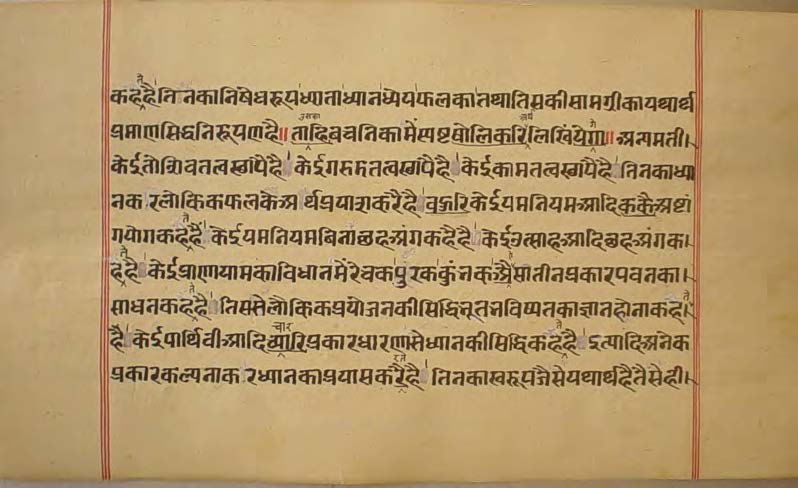 कहहैं तिनका निषेधरूप ध्याता ध्यान ध्येय फलका तथा तिसकी सामग्रीका यथार्थ
प्रमाणसिद्ध निरूपण है॥ ताहि वचनिकामें स्पष्ट षोलिकरि लिखियेगा॥ अन्यमती।
केई तो शिवतत्व स्थापै है। केई गरुडतत्व स्थापै है। केई कामतत्व स्थापै है। तिनका ध्या
नकर लौकिक फलके अर्थ प्रयास करै है। बहुरि केई यम नियम आदिककै अष्टां
गयोग कहै हैं। केई यम नियम बिना छह अंग कहै है। केई उत्साह आदि छह अंग क।
है है। केई प्राणायामका विधानमें रेचक पुरक कुंभक औसा तीन प्रकार पवनका।
साधन कहै है। तिससे लौकिक प्रयोजनकी सिद्धि भूत भविष्यतका ज्ञान होना कह।
है। केई पार्थिवी आदि च्यारि प्रकार धारणासे ध्यानकी सिद्धि कहै है। इत्यादि अनेक
प्रकार कल्पना कर ध्यानका प्रयास करै है। तिनका स्वरूप जैसे यथार्थ है तैसे ही।